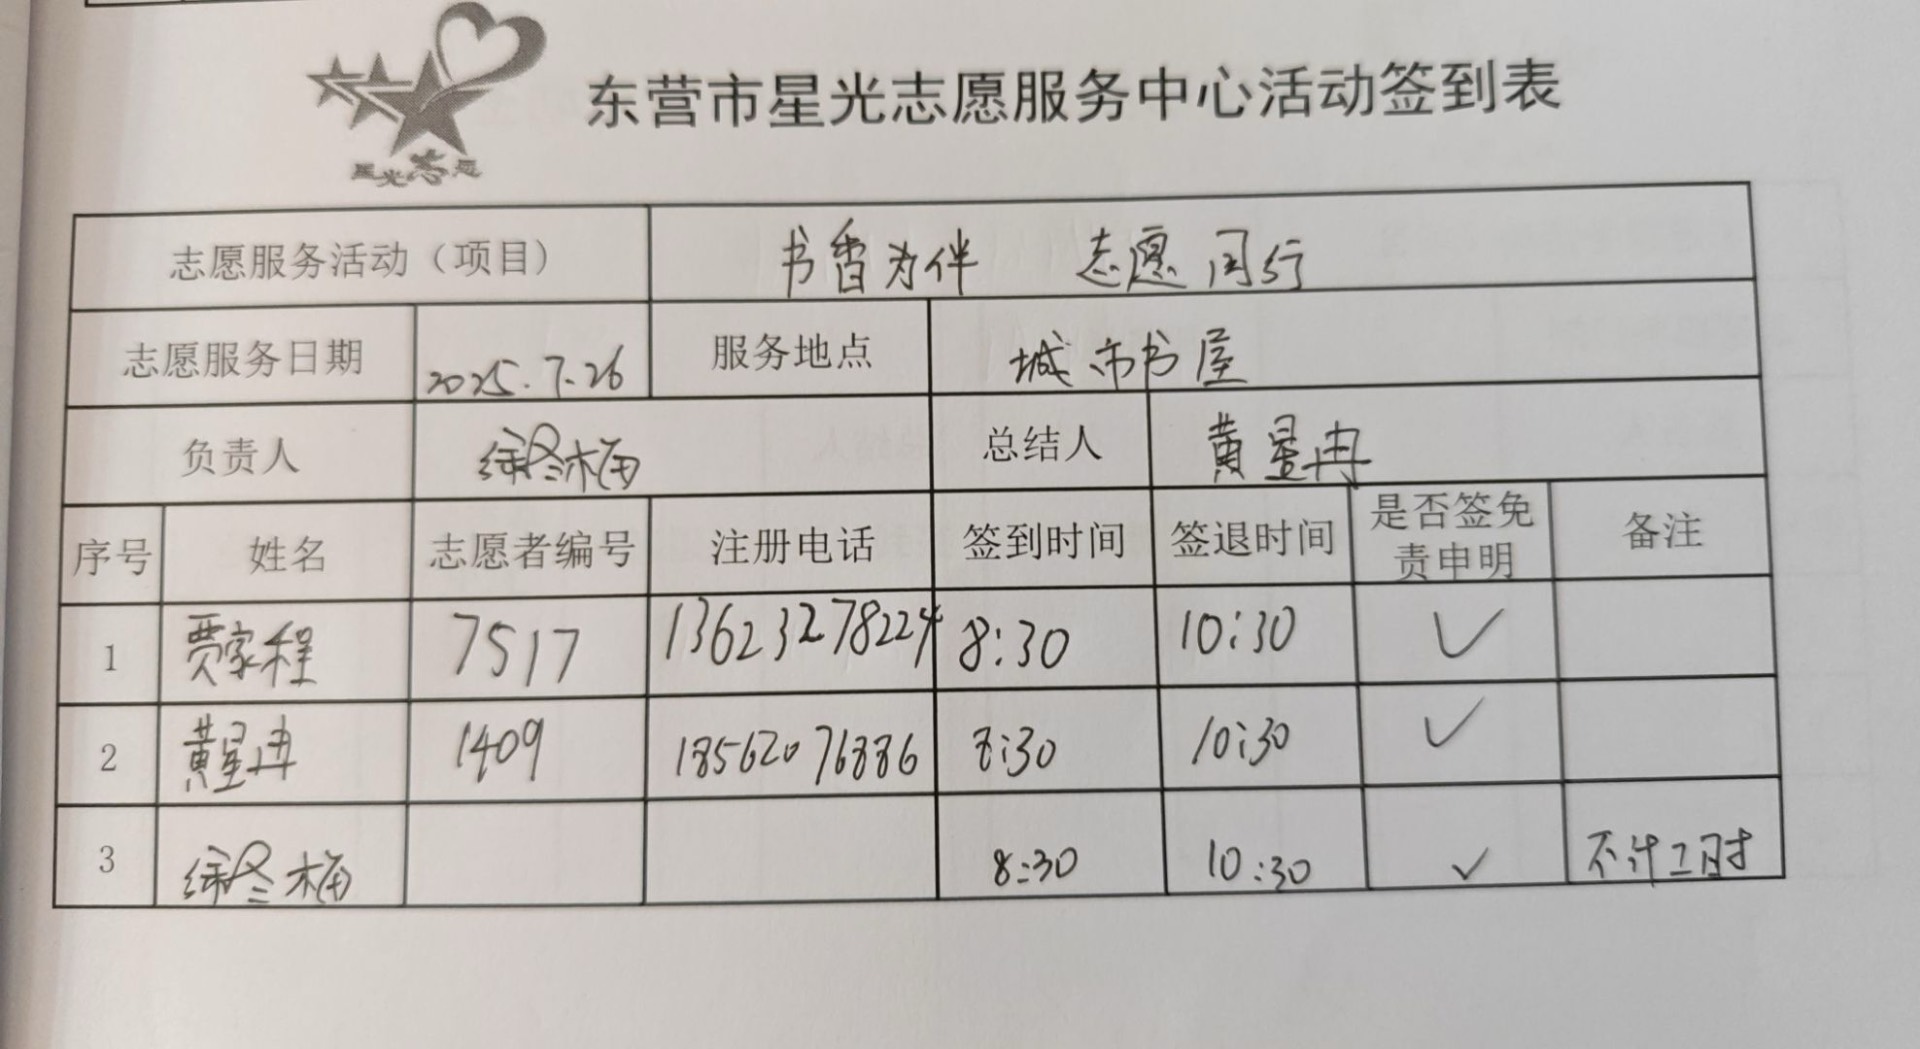 星光志愿
东营市星光志愿服务中心活动签到表
志愿服务活动（项目） 书香为伴 志愿同行
志愿服务日期 2025.7.26 服务地点 城市书屋
负责人 徐冬梅 总结人 黄星冉
序号 姓名 志愿者编号 注册电话 签到时间 签退时间 是否签免责申明 备注
1 贾家程 7517 13623278224 8:30 10:30 ✓
2 黄星冉 1409 18562076886 8:30 10:30 ✓
3 徐冬梅 8:30 10:30 ✓ 不计工时